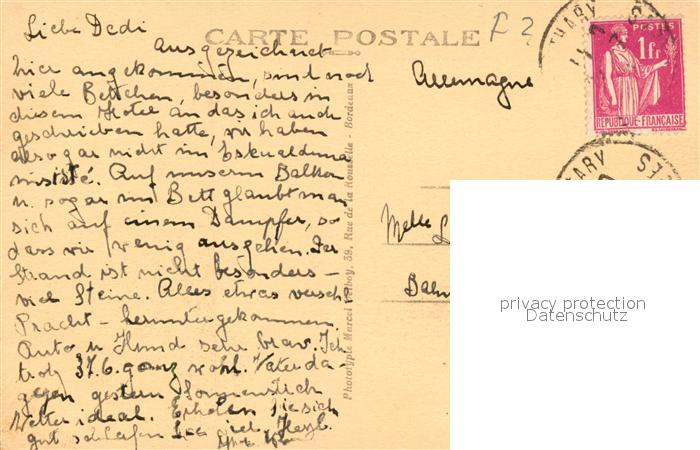 Liebe Dedi
CARTE POSTALE
F 2
Ausgezeichnet
hier angekommen, sind noch
viele Bettchen, besonders in
diesem Hotel an das ich auch
geschrieben hatte, wir haben
also gar nicht im Eskualduna
Auf unserem Balkon
u. sogar im Bett glaubt man
sich auf einem Dampfer, so
dass wir wenig ausgehen. Der
Strand ist nicht besonders -
viel Steine. Alles etwas versch.
Pracht - heruntergekommen.
Auto u. Hund sehr brav. Ich
trotz 37.6. ganz wohl. Vater da-
gegen gestern
Wetter ideal. Erholen Sie sich
gut schlafen Sie viel. Herzl.
Phototypie Marcel Delboy, 39, Rue de la Rousselle - Bordeaux
Allemagne
Melle L
Bahn
POSTES
1fr
REPUBLIQUE-FRANÇAISE
privacy protection
Datenschutz